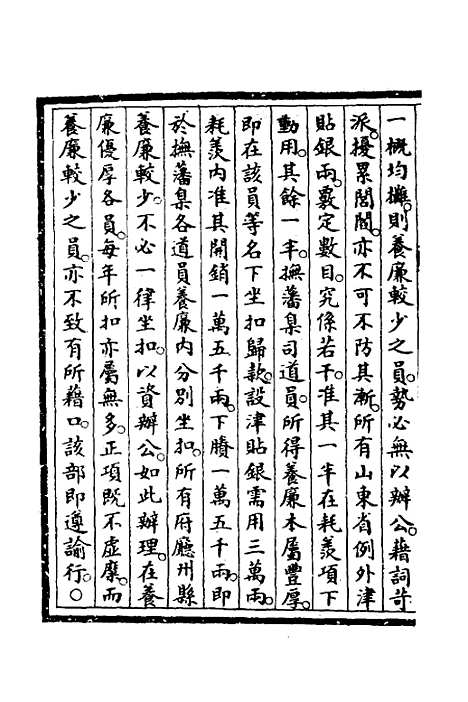 一概均攤。則養廉較少之員。勢必無以辦公。藉詞苛
派。擾累閭閻。亦不可不防其漸。所有山東省例外津
貼銀兩。覈定數目。究係若干。准其一半在耗羨項下
動用。其餘一半。撫藩臬司道員。所得養廉本屬豐厚。
即在該員等名下坐扣歸款。設津貼銀需用三萬兩。
耗羨內准其開銷一萬五千兩。下賸一萬五千兩。即
於撫藩臬各道員養廉內分別坐扣。所有府廳州縣
養廉較少。不必一律坐扣。以資辦公。如此辦理。在養
廉優厚各員。每年所扣亦屬無多。正項既不虛糜。而
養廉較少之員。亦不致有所藉口。該部即遵諭行。○